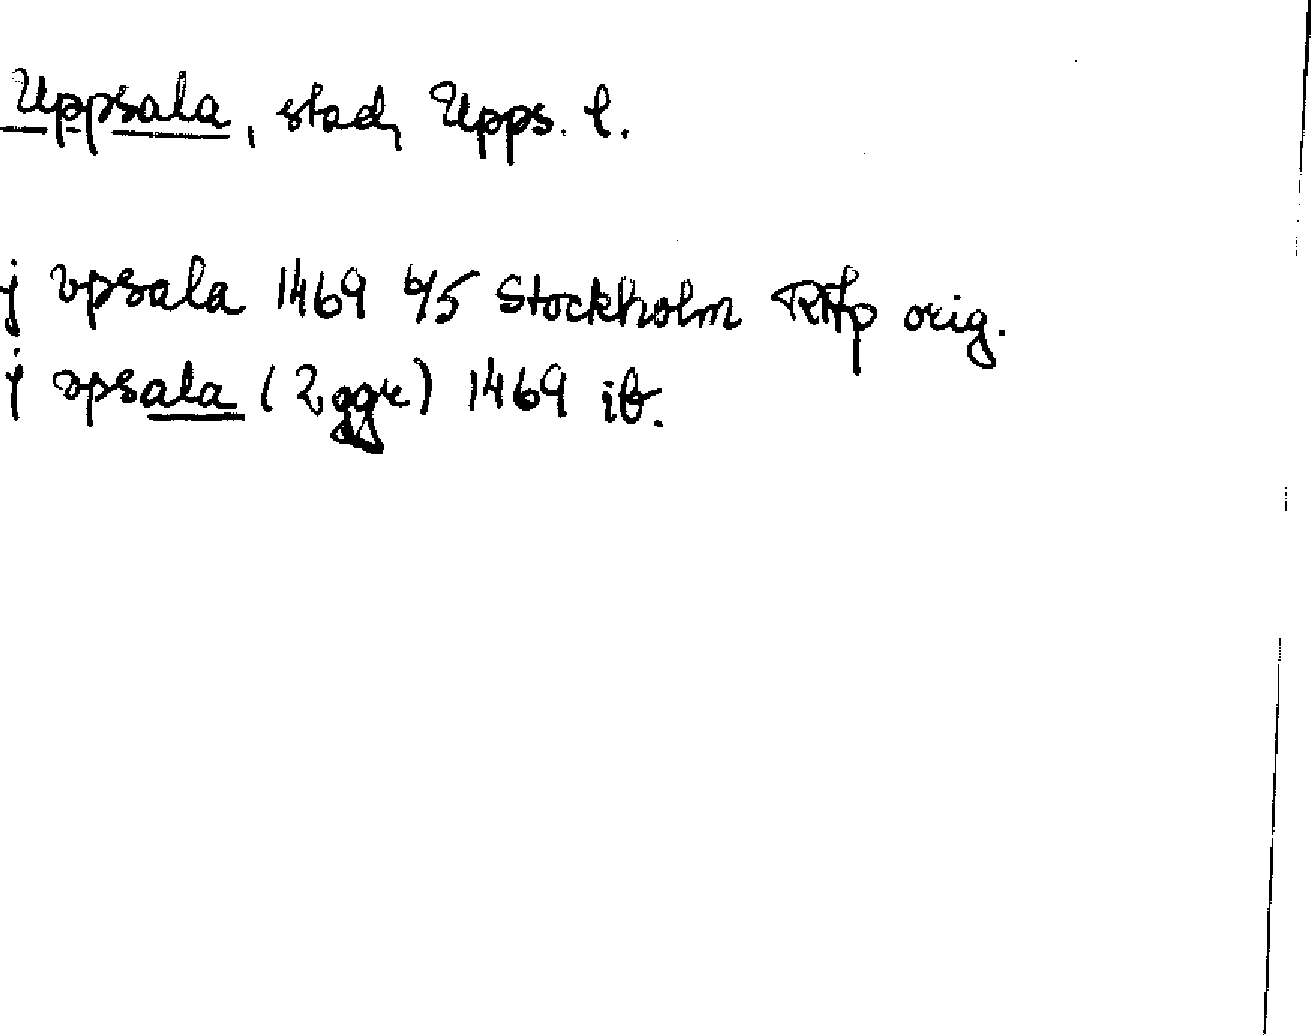 Uppsala, stad, Upps. l.
j vpsala 1469 6/5 Stockholm RAp orig.
j vpsala (2 ggr) 1469 ib.